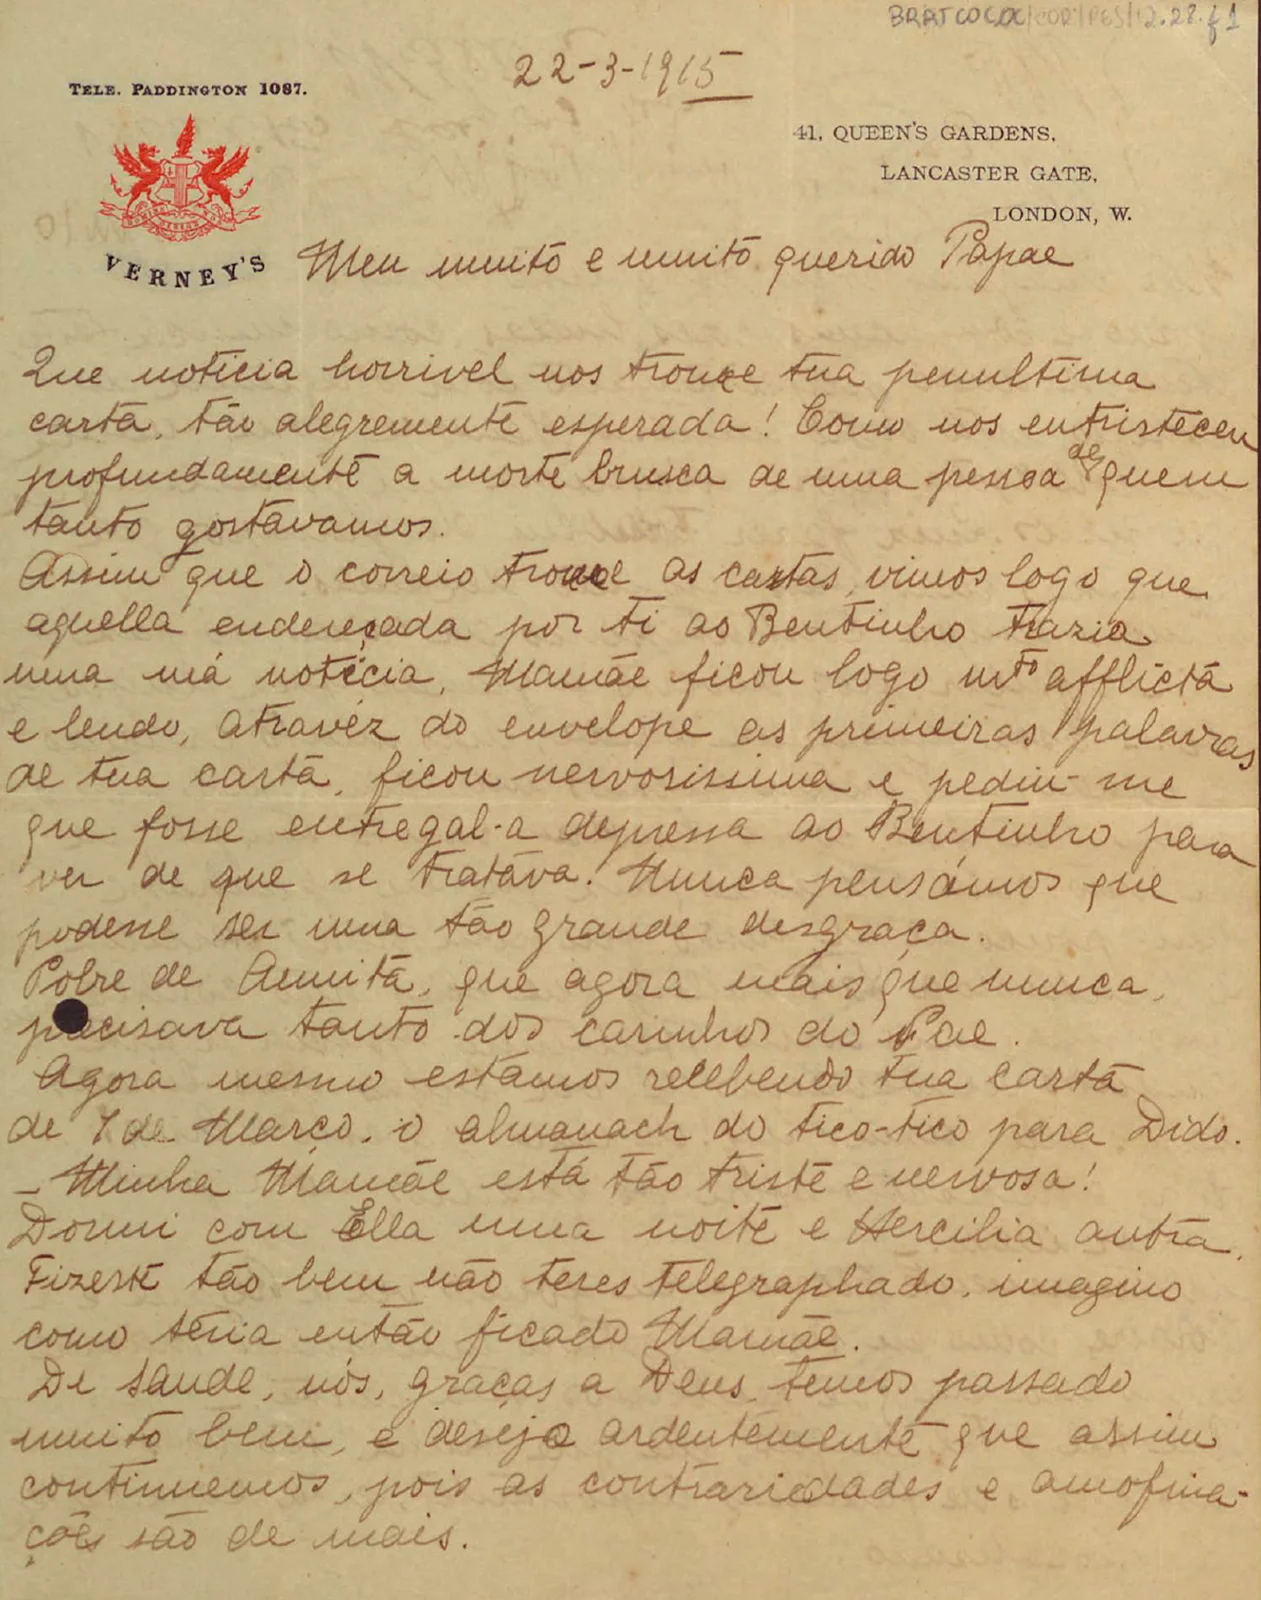 22-3-1915
TELE. PADDINGTON 1087.
41, QUEEN'S GARDENS,
LANCASTER GATE,
LONDON, W.
VERNEY'S
Meu muito e muito querido Papae
Que noticia horrivel nos trouxe tua penultima
carta, tão alegremente esperada! Como nos entristeceu
profundamente a morte brusca de uma pessoa de quem
tanto gostavamos.
Assim que o correio trouxe as cartas, vimos logo que
aquella endereçada por ti ao Bentinho trazia
uma má noticia, Mamãe ficou logo mto afflicta
e lendo, atravéz do envelope as primeiras palavras
de tua carta, ficou nervosissima e pediu-me
que fosse entregal-a depressa ao Bentinho para
ver de que se tratava. Nunca pensámos que
podesse ser uma tão grande desgraça.
Pobre de Annita, que agora mais que nunca,
precisava tanto dos carinhos do Pae.
Agora mesmo estamos recebendo tua carta
de 7 de Março, o almanach do tico-tico para Dido.
- Minha Mamãe está tão triste e nervosa!
Dormi com Ella uma noite e Hercilia outra.
Fizeste tão bem não teres telegraphado, imagino
como teria então ficado Mamãe.
De saude, nós, graças a Deus, temos passado
muito bem, e desejo ardentemente que assim
continuemos, pois as contrariedades e amofina-
ções são de mais.